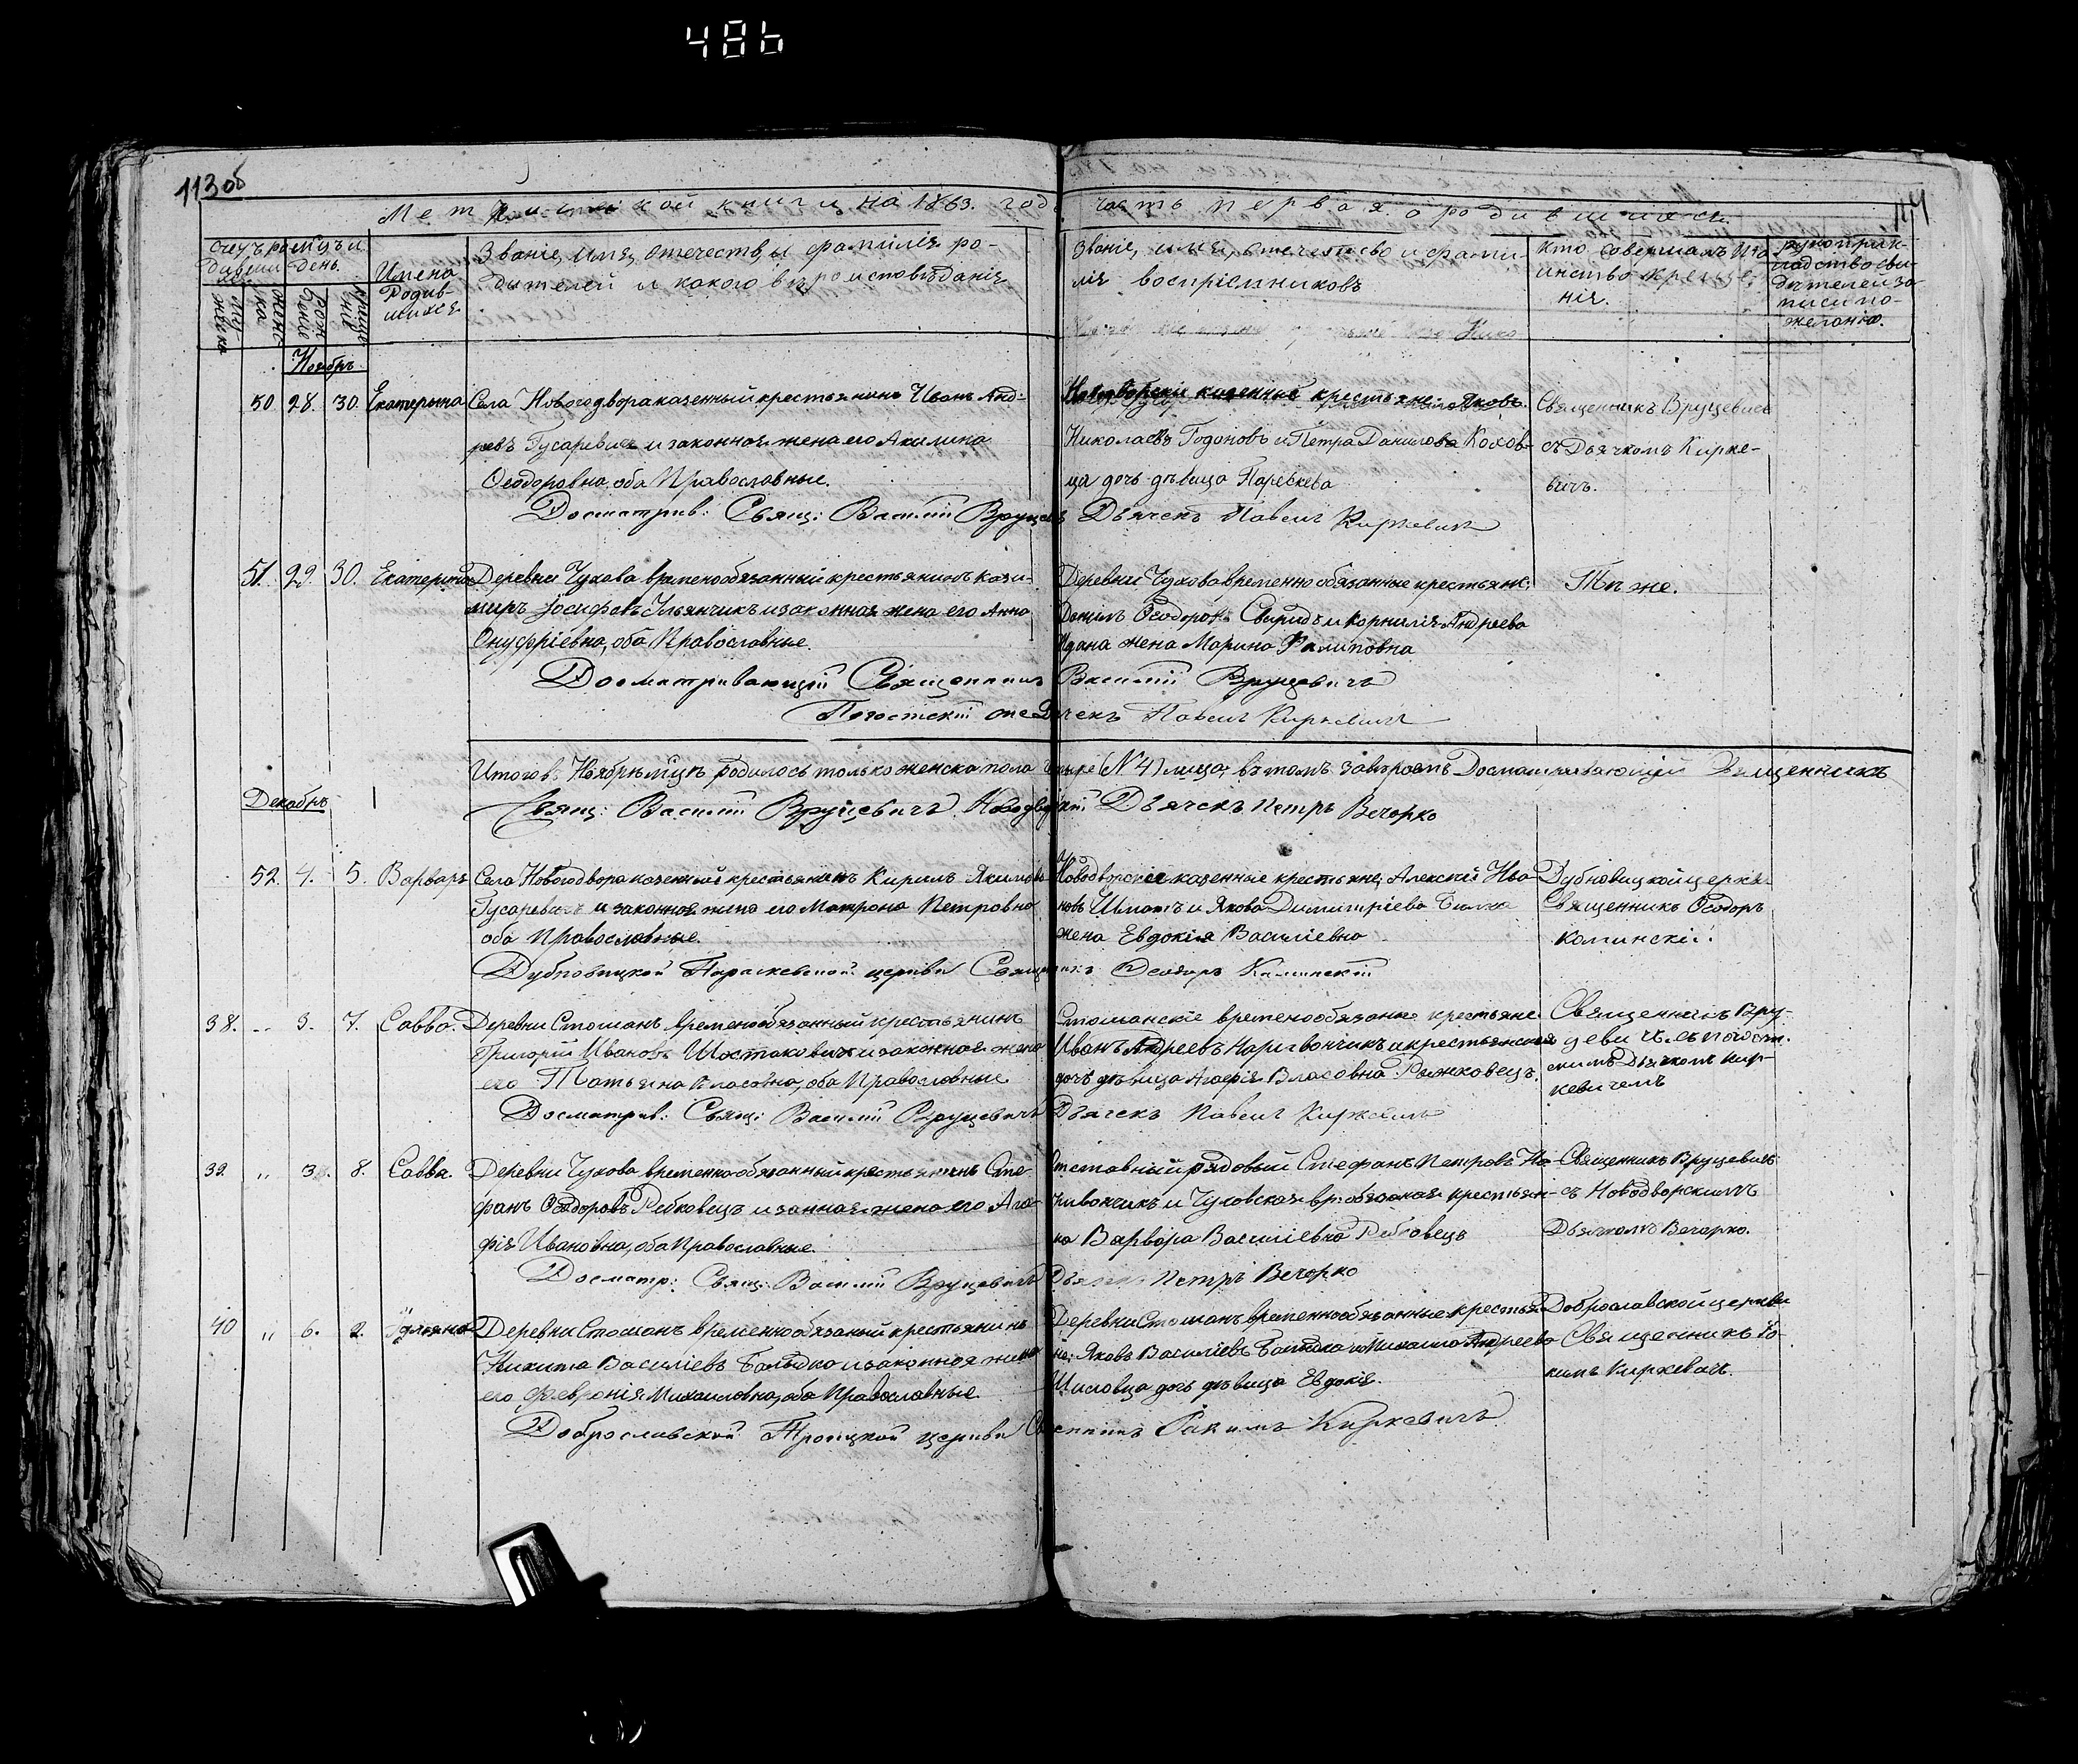 486
113 об
114
Метрической книги на 1863. годъ часть первая о родившихся.
Счетъ родившихся
Мѣсяцъ и день.
мужеска
женска
рожденіе
крещеніе
Имена Родившихся.
Званіе, имя, отечество, и фамилія родителей и какого вѣроисповѣданія
Званіе, имя, отечество и фамилія воспріемниковъ
Кто совершалъ таинство крещенія.
Рукоприкладство свидѣтелей записи по желанію.
Ноябрь
50 28. 30. Екатерина
Села Новогодвора казенный крестьянинъ Иванъ Анд-
реевъ Гусаревичъ и законная жена его Акилина
Ѳеодоровна, оба Православные.
Новодворскіе казенные крестьяне: Яковъ
Николаевъ Годоновъ и Петра Данилова Кохов-
ца дочь дѣвица Параскева
Священникъ Вруцевичъ
съ Дьячкомъ Кирке-
вичъ.
Досматрив: Свящ: Василій Вруцевичъ Дьячекъ Павелъ Киркевичъ
51. 29. 30. Екатерина
Деревни Чухова временнообязанный крестьянинъ Кази-
миръ Іосифовъ Ульянчикъ и законная жена его Анна
Онуфріевна, оба Православные.
Деревни Чухова временно обязанные крестьяне:
Данилъ Ѳеодоровъ Свиридъ и Корнилія Андреева
Ждана жена Марина Филиповна
Тѣ же.
Досматривающій Священникъ Василій Вруцевичъ
Погостскій Дьячекъ Павелъ Киркевичъ
Итогъ въ Ноябрѣ м-цѣ родилось только женска пола четыре (№ 4) лица, въ томъ завѣряетъ Досматривающій Священникъ
Свящ: Василій Вруцевичъ. Новодворскій Дьячекъ Петръ Вечорко
Декабрь
52. 4. 5. Варвара
Села Новогодвора казенный крестьянинъ Кирилъ Якимовъ
Гусаревичъ и законная жена его Матрона Петровна
оба Православные.
Новодворскіе казенные крестьяне, Алексѣй Ива-
новъ Шматъ и Якова Димитріева
жена Евдокія Василіевна
Дубновицкой церкви
Священникъ Ѳеодоръ
Каминскій.
Дубновицкой Параскевской церкви Священникъ Ѳеодоръ Каминскій
38. „ 3. 7. Савва.
Деревни Стошанъ временнообязанный крестьянинъ
Григорій Ивановъ Шостаковичъ и законная жена
его Татьяна Власовна, оба Православные
Стошанскіе временообязаные крестьяне
Иванъ Андреевъ Наривончикъ и крестьянская
дочь дѣвица Агафія Власовна Рыжковецъ.
Священникъ Вру-
цевичъ съ погост-
скимъ Дьячкомъ Кир-
кевичемъ
Досматрив: Свящ: Василій Вруцевичъ Дьячекъ Павелъ Киркевичъ
39. „ 3. 8. Савва.
Деревни Чухова временнообязанный крестьянинъ Сте-
фанъ Ѳеодоровъ Ребковецъ и законая жена его Ага-
фія Ивановна, оба Православные.
Отставный рядовый Стефанъ Петровъ На-
ривончикъ и Чуховская вр: обязаная крестьян-
ка Варвара Василіевна Ребковецъ
Священникъ Вруцевичъ
съ Новодворскимъ
Дьячкомъ Вечорко.
Досматр: Свящ: Василій Вруцевичъ Дьячекъ Петръ Вечорко
40 „ 6. 2.
Деревни Стошанъ временнообязаный крестьянинъ
Никита Василіевъ Балыдко и законная жена
его Февронія Михаиловна, оба Православные
Деревни Стошанъ временнообязанные крестья-
не: Яковъ Василіевъ Балыдко и Михаила Андреева
Шиловца дочь дѣвица Евдокія.
Доброславской церкви
Священникъ Іо-
кимъ Киркевичъ.
Доброславской Троицкой церкви Священникъ Іакимъ Киркевичъ